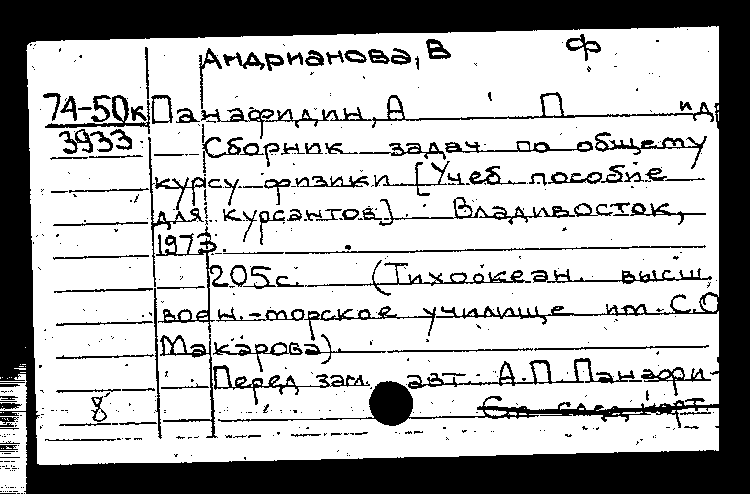 Андрианова, В Ф
74-50к Панафидин, А П и др
3933 Сборник задач по общему
курсу физики [Учеб. пособие
для курсантов]. Владивосток,
1973.
205с. (Тихоокеан. высш.
воен.-морское училище им. С.О
Макарова).
Перед загл. авт. А.П. Панафи-
8 См. след. карт